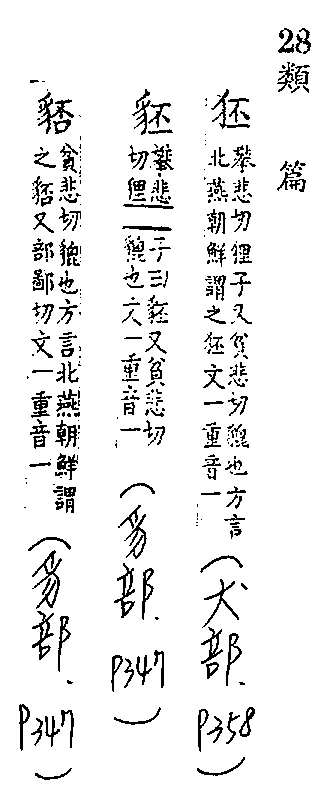 28類篇
狉 攀悲切貍子又貧悲切貔也方言
北燕朝鮮謂之狉文一重音一
(犬部. P358)
豾 攀悲
切貍
子曰豾又貧悲切
貔也文一重音一
(豸部. P347)
貧悲切貔也方言北燕朝鮮謂
之又部鄙切文一重音一
(豸部. P347)